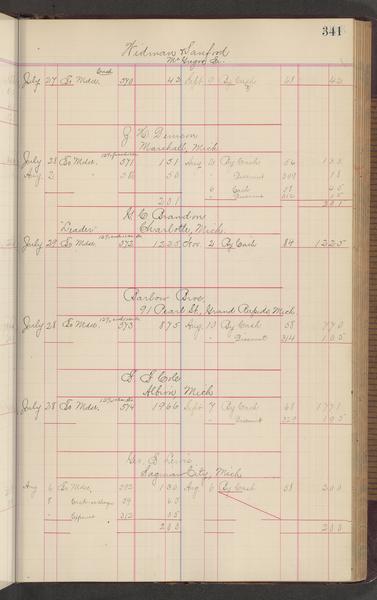 341
Widman & Sanford
McGregor Ia.
July 27 To Mdse. 570 42 Sept 9 By Cash 68 42
Marshall, Mich
July 28 To Mdse. 571 1 51 Aug By Cash 56
Aug 2 " 50 " Discount
6 Cash 58 45
" Discount 312
2 01 2 01
G. C. Brandon
"Leader" Charlotte, Mich.
July 29 To Mdse. 572 12 25 Nov. 2 By Cash 84 12 25
Barlow Bros.
91 Pearl St., Grand Rapids Mich.
July 28 To Mdse. 573 8 75 Aug 10 By Cash 58 7 70
" Discount 314 1 05
Albion Mich
July 28 To Mdse. 574 19 66 Sept 7 By Cash 68 17 71
" Discount 329 1 95
Geo. S. Lewis
Saginaw City, Mich
Aug 6 To Mdse. 592 1 30 Aug 6 By Cash 58 2 00
8 59 65
" Expense 312 05
2 00 2 00